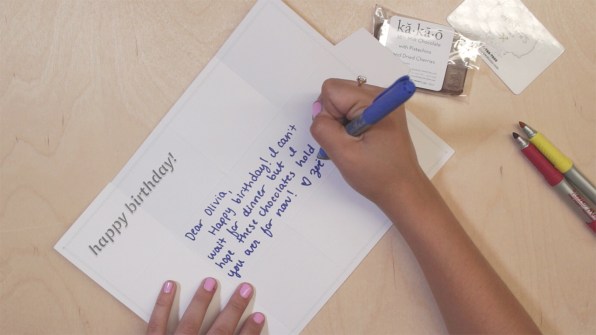 happy birthday!
Dear Olivia,
Happy birthday! I can't
wait for dinner but I
hope these chocolates hold
you over for now! ♡ Zoe
kă·kă·ō
Chocolate
with Pistachios
and Dried Cherries